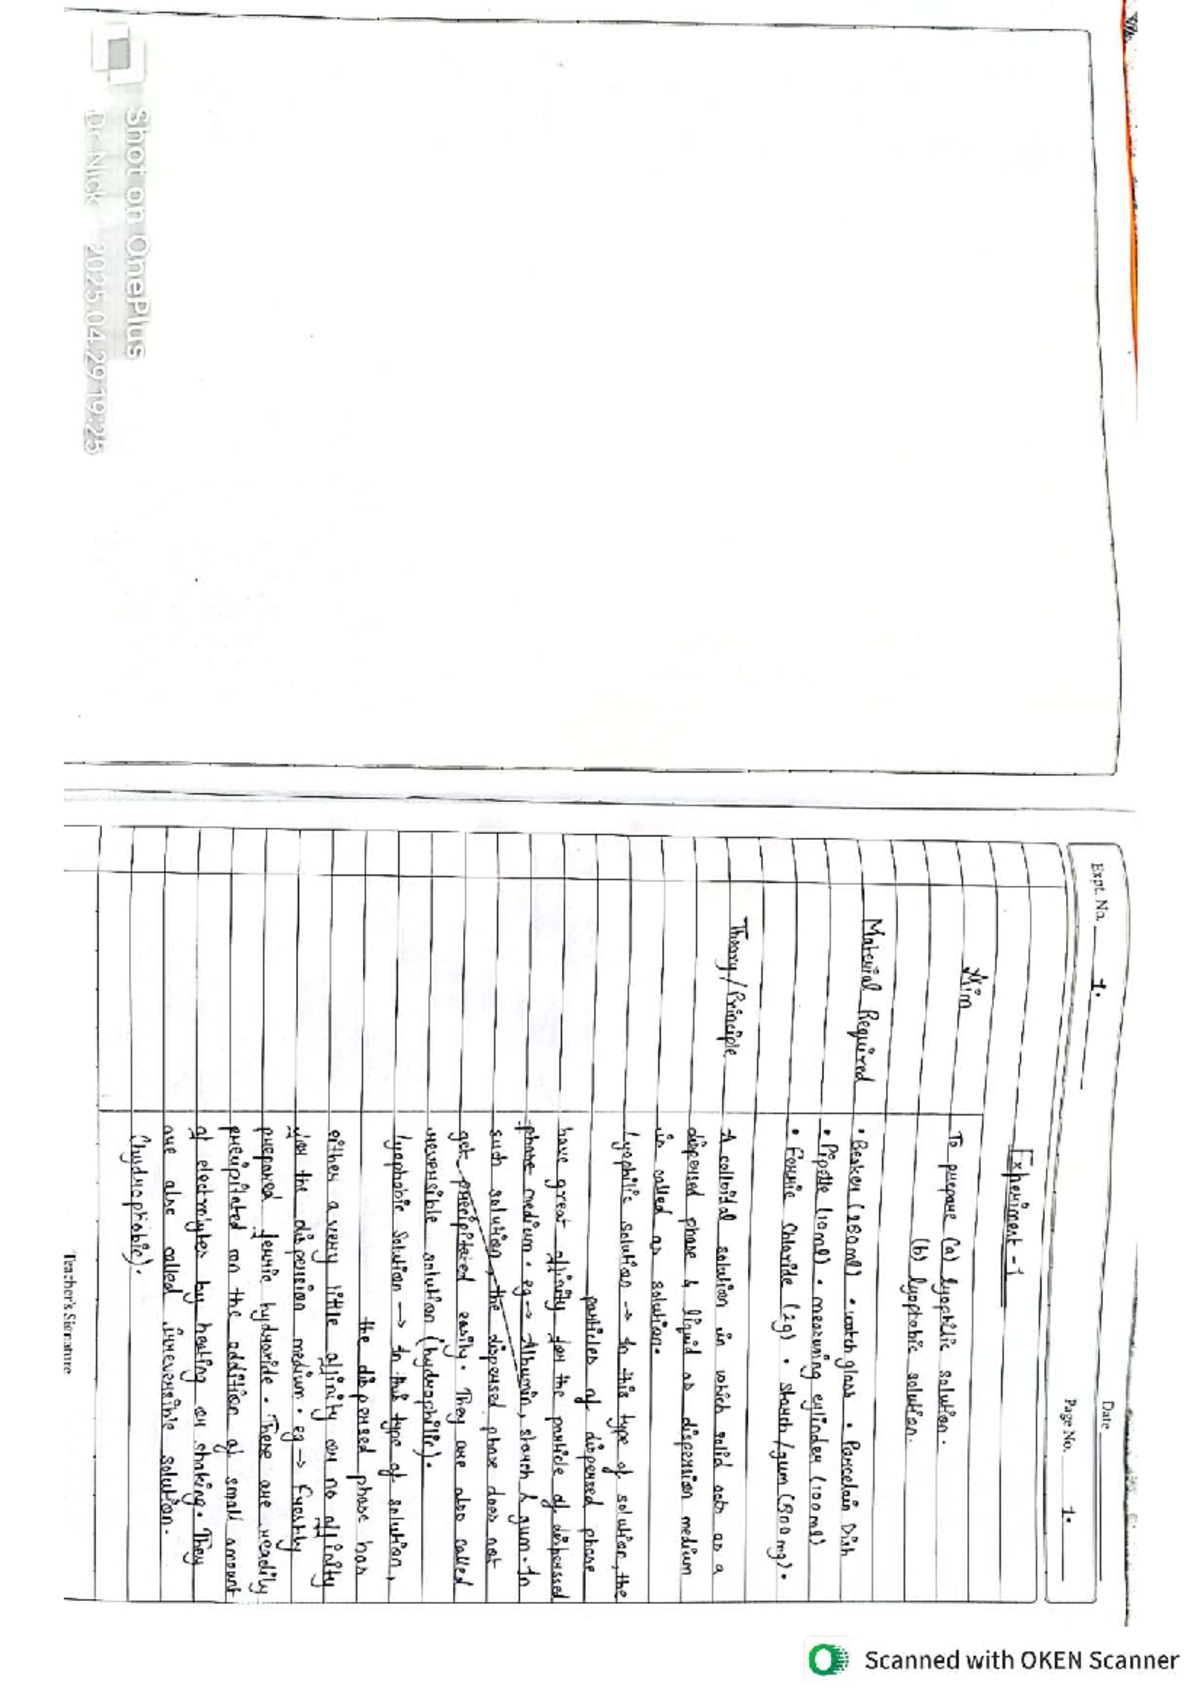 Expt. No. 1.
Date
Page No. 1.
Experiment - 1
Aim
To prepare (a) lyophilic solution.
(b) lyophobic solution.
Material Required
• Beaker (250ml) • watch glass • Porcelain Dish
• Pipette (10ml) • measuring cylinder (100ml)
• Ferric Chloride (2g) • starch/gum (500mg).
Theory/Principle
A colloidal solution in which solid acts as a
dispersed phase & liquid as dispersion medium
is called as solution.
lyophilic solution → In this type of solution, the
particles of dispersed phase
have great affinity for the particle of dispersed
phase medium. eg → Albumin, starch & gum. In
such solution, the dispersed phase does not
get precipitated easily. They are also called
reversible solution (hydrophilic).
lyophobic Solution → In this type of solution,
the dispersed phase has
either a very little affinity or no affinity
for the dispersion medium. eg → Freshly
prepared ferric hydroxide. These are readily
precipitated on the addition of small amount
of electrolytes by heating or shaking. They
are also called irreversible solution.
(hydrophobic).
Teacher's Signature
Shot on OnePlus
Dr Nick 2025.04.29 19:25
Scanned with OKEN Scanner